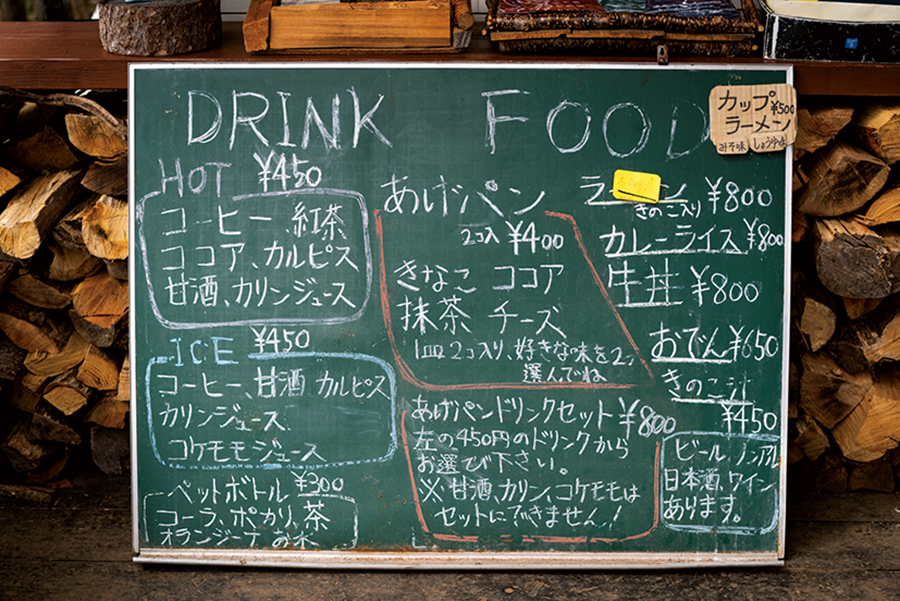 DRINK
HOT ¥450
コーヒー、紅茶
ココア、カルピス
甘酒、カリンジュース
ICE ¥450
コーヒー、甘酒 カルピス
カリンジュース
コケモモジュース
ペットボトル ¥300
コーラ、ポカリ、茶
オランジーナ お水
FOOD
あげパン
2コ入 ¥400
きなこ ココア
抹茶 チーズ
1皿2コ入り、好きな味を2つ
選んでね
あげパンドリンクセット ¥800
左の450円のドリンクから
お選び下さい。
※甘酒、カリン、コケモモは
セットにできません!
カップ ¥500
ラーメン
みそ味 しょうゆ味
ラーン ¥800
きのこ入り
カレーライス ¥800
牛丼 ¥800
おでん ¥650
きのこ汁
¥450
ビール ノンアル
日本酒、ワイン
あります。